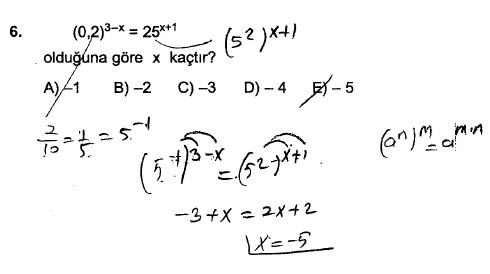 6. (0,2)³⁻ˣ = 25ˣ⁺¹ (5²)ˣ⁺¹
olduğuna göre x kaçtır?
A) –1 B) –2 C) –3 D) – 4 E) – 5
2/10 = 1/5 = 5⁻¹
(5⁻¹)³⁻ˣ = (5²)ˣ⁺¹ (aⁿ)ᵐ = aᵐ·ⁿ
-3+x = 2x+2
x = -5